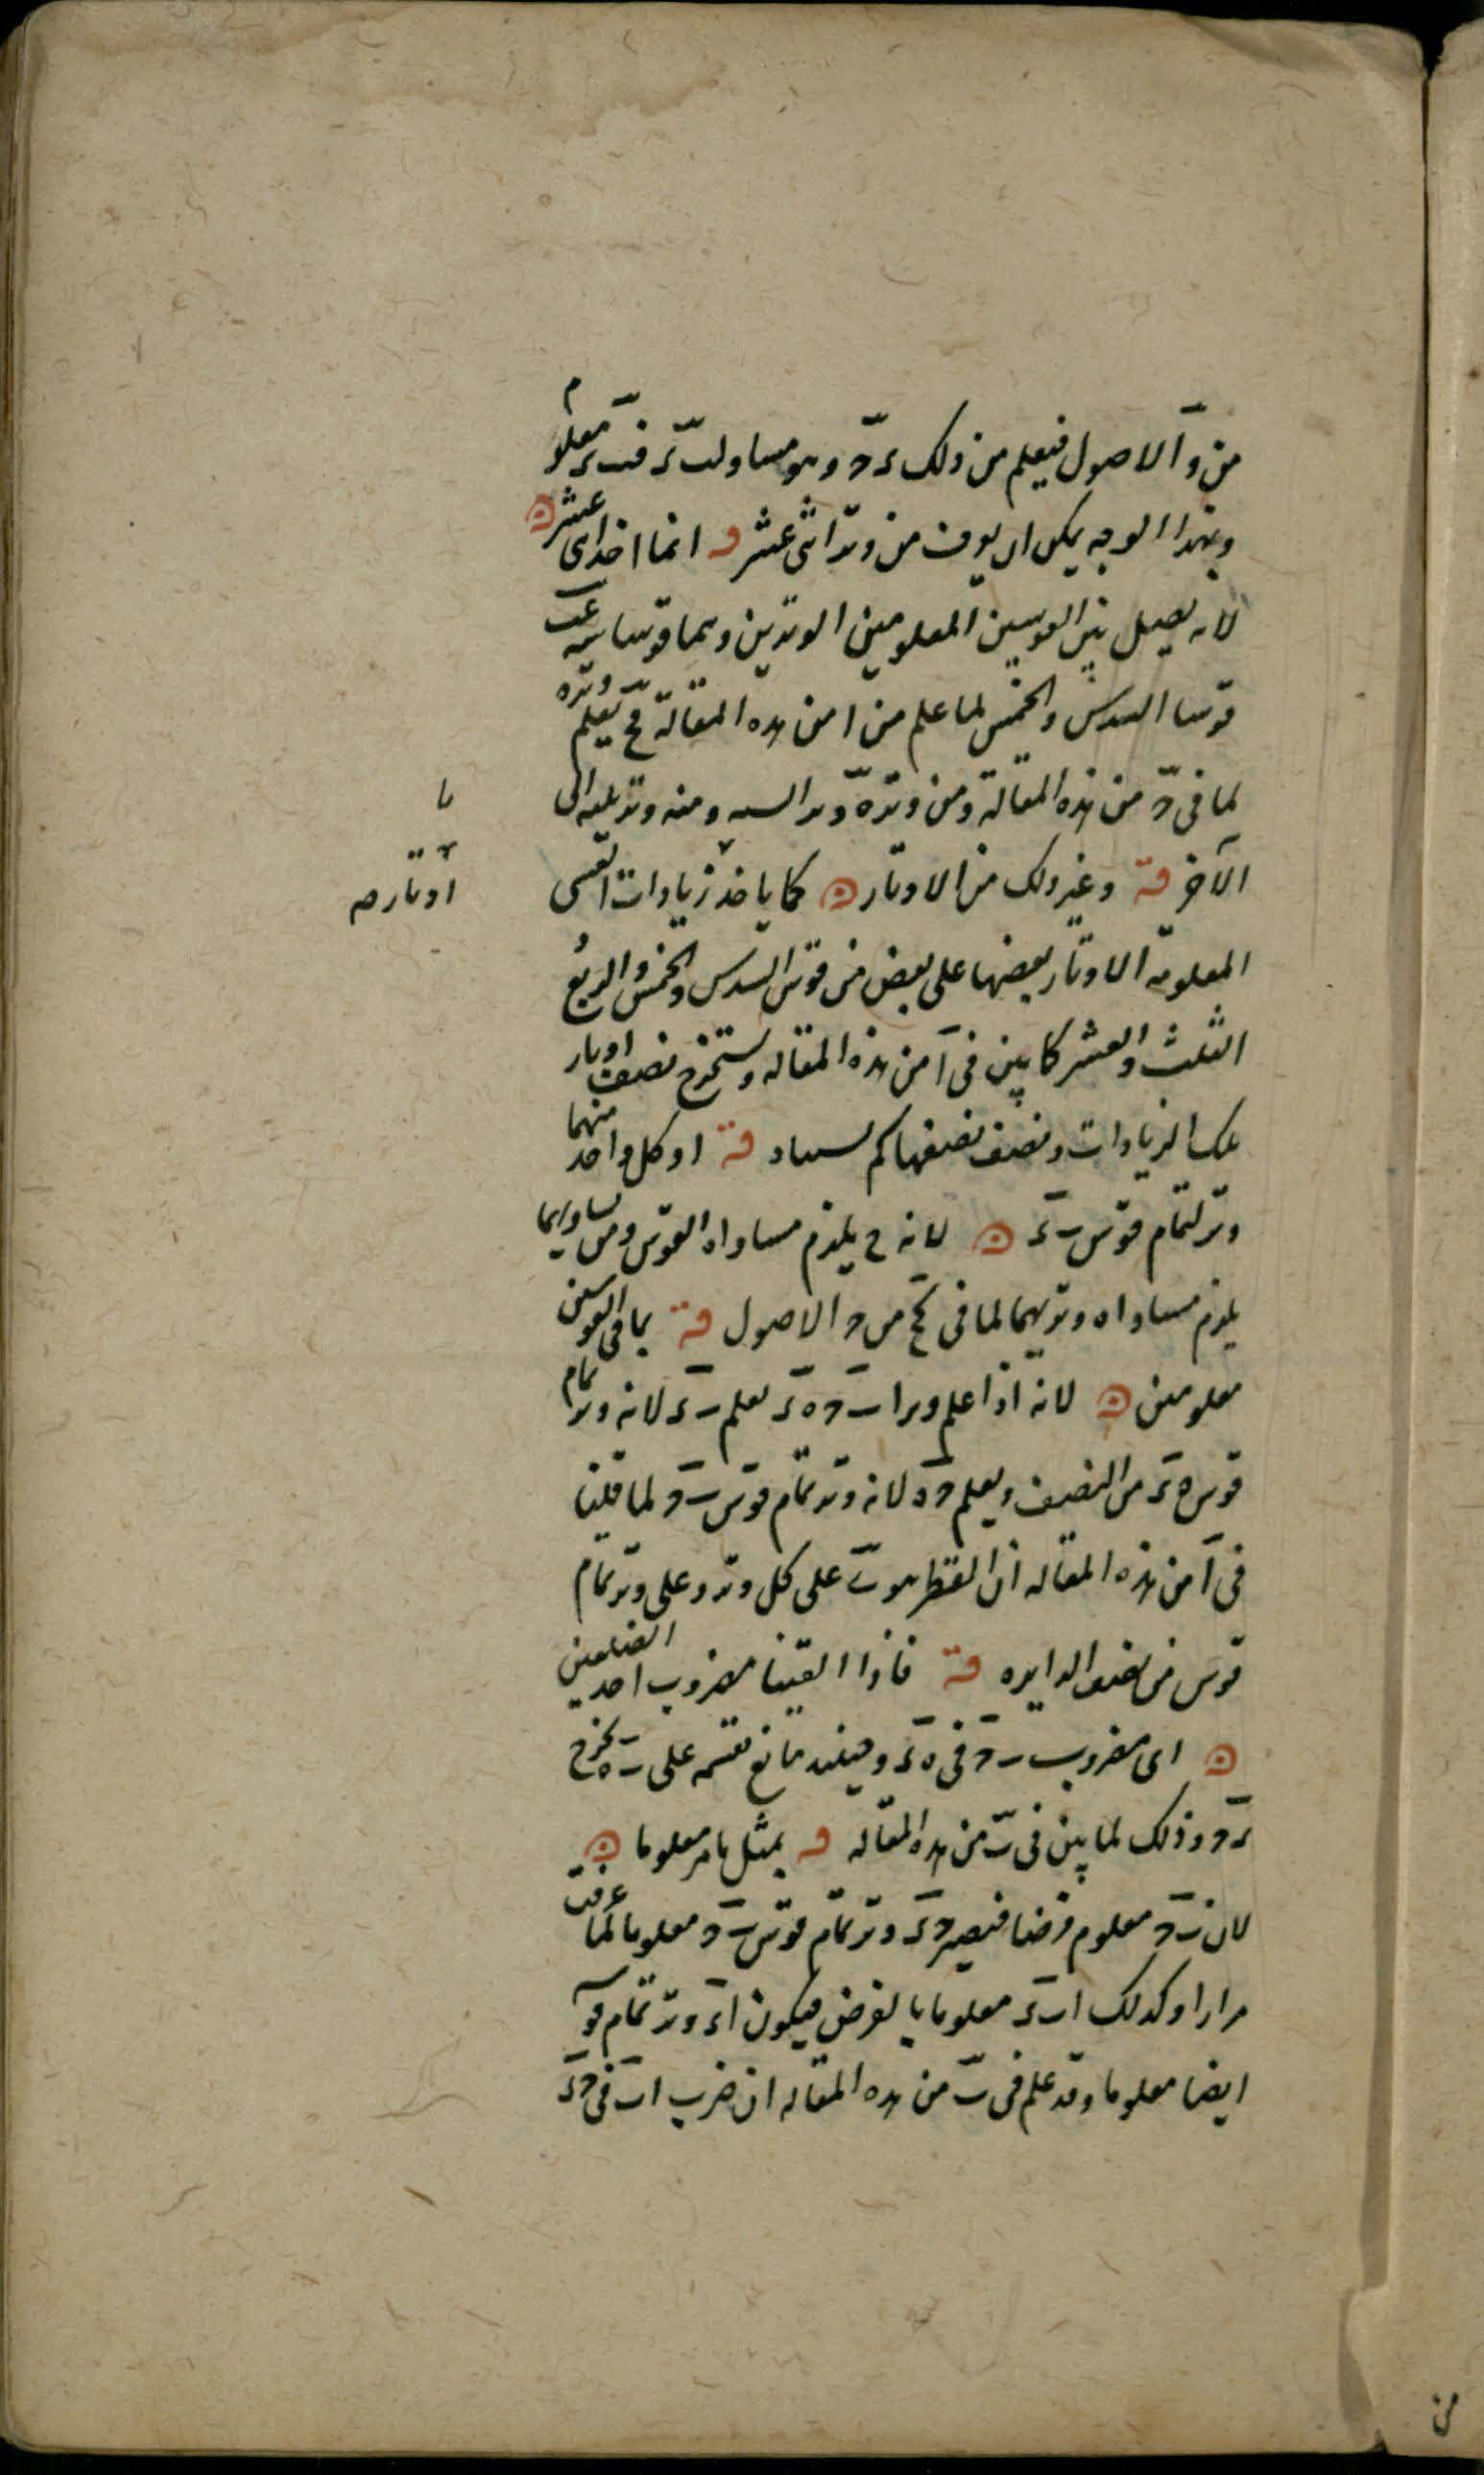 من و آ الاصول فيعلم من ذلک ء د وهو مساو لب ء فب ء معلوم
وبهذا الوجه يمكن ان يعرف من وتر اثنى عشر قه انما اخذ اى عشر
لانه يحصل بين القوسين المعلومين الوترين وهما قوسا
قوسا السدس والخمس لما علم من ا من هذه المقالة فح يعلم وتره
لما فى د من هذه المقالة ومن وتره ومنه وتر يليه الى
الآخر قة وغير ذلک من الاوتار ۞ كما ياخذ زيادات القسى
المعلومة الاوتار بعضها على بعض من قوس السدس والخمس والربع
الثلث والعشر كما بين فى آ من هذه المقاله ويستخرج نصف اوتار
تلك الزيادات ونصف نصفها كم قة او كل واحد منهما
وتر لتمام قوس ب ء ۞ لانه ح يلزم مساواه القوس ومن تساويهما
يلزم مساواه وتريهما لما فى كح من د الاصول قة بما فى القوسين
معلومين ۞ لانه اذا علم وترا ب د ه ء يعلم ب ء لانه وتر تمام
قوس ه ء من النصف ويعلم د ه لانه وتر تمام قوس ب د لما قلنا
فى آ من هذه المقاله ان القطر على كل وتر وعلى وتر تمام
قوس من نصف الدايره قة فاذا القينا مضروب احد الضلعين
۞ اى مضروب ب د فى ه ء وحينئذ نقسمه على ب ه يخرج
ء د وذلك لما بين فى ب من هذه المقاله قه بمثل ما مر معلوما ۞
لان ب د معلوم فرضا فيصير د ء وتر تمام قوس ب د معلوما لما عرفت
مرارا وكذلك ا ب ء معلوما بالفرض فيكون ا ء وتر تمام قو
ايضا معلوما وقد علم فى ب من هذه المقاله ان ضرب ا ب فى د ء
ما
اوتاره
من